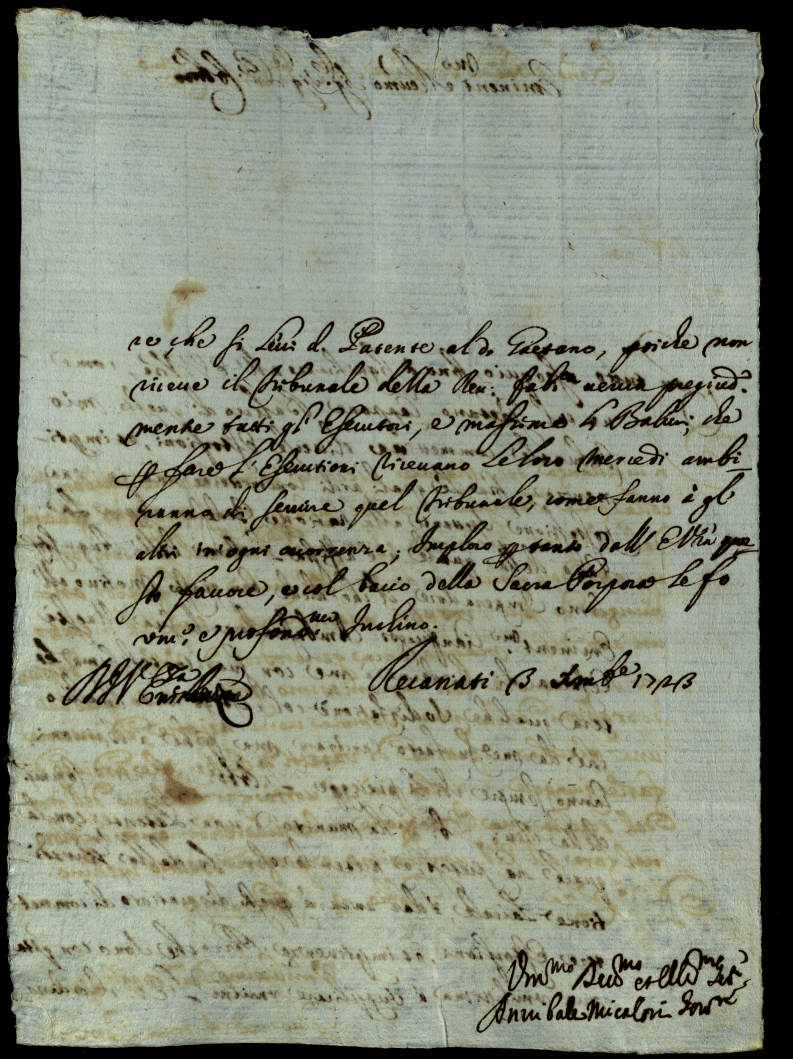 re, che si Levi d. Patente al do Gaetano, poiche non
riceve il Tribunale della Reu: Fabca verun pregiud.
mente tutti gl' Esecutori, e massime li Balivi, che
p fare l' Esecutioni ricevano le loro mercedi ambi-
ranno di servire quel Tribunale, come fanno à gl'
altri in ogni occorenza; Imploro p tanto dall' E Vra que-
sto favore, e col bacio della Sacra Porpora le fo
um.e e profondme Inchino.
Di V. Emza Recanati 3 Xmbre 1723
Vmmo Devmo et Obbmo Ser.
Annibale Micalori Govre